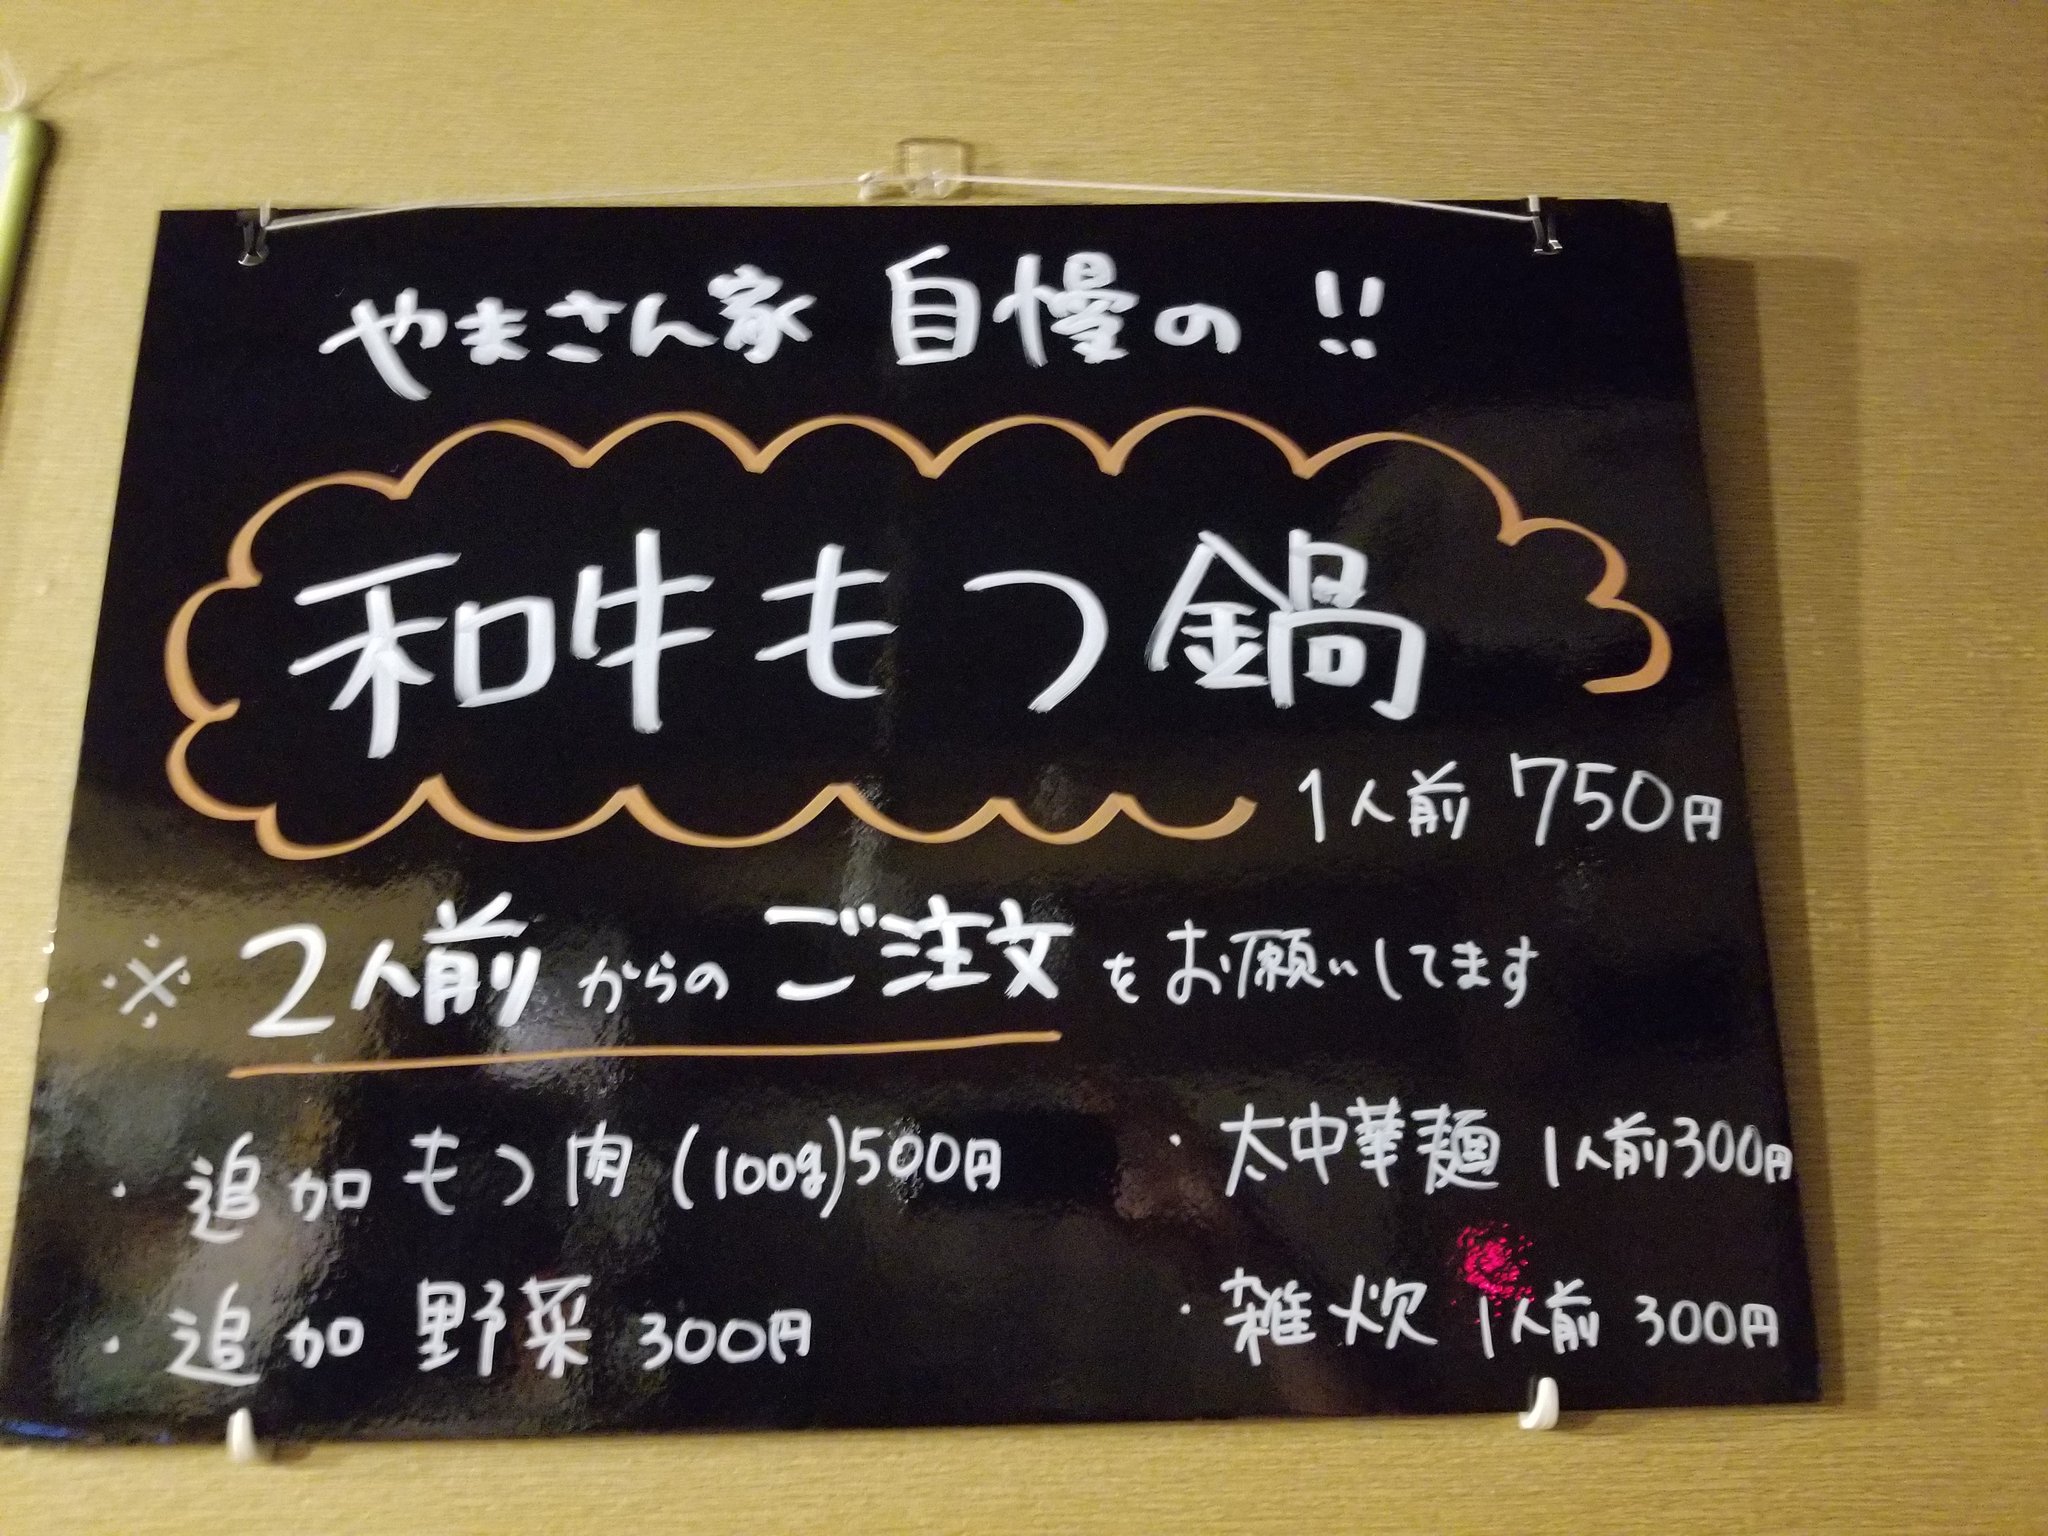 やまさん家 自慢の!!
和牛もつ鍋
1人前 750円
※ 2人前からのご注文をお願いしてます
・追加もつ肉(100g)500円
・追加 野菜 300円
・太中華麺 1人前300円
・雑炊 1人前 300円